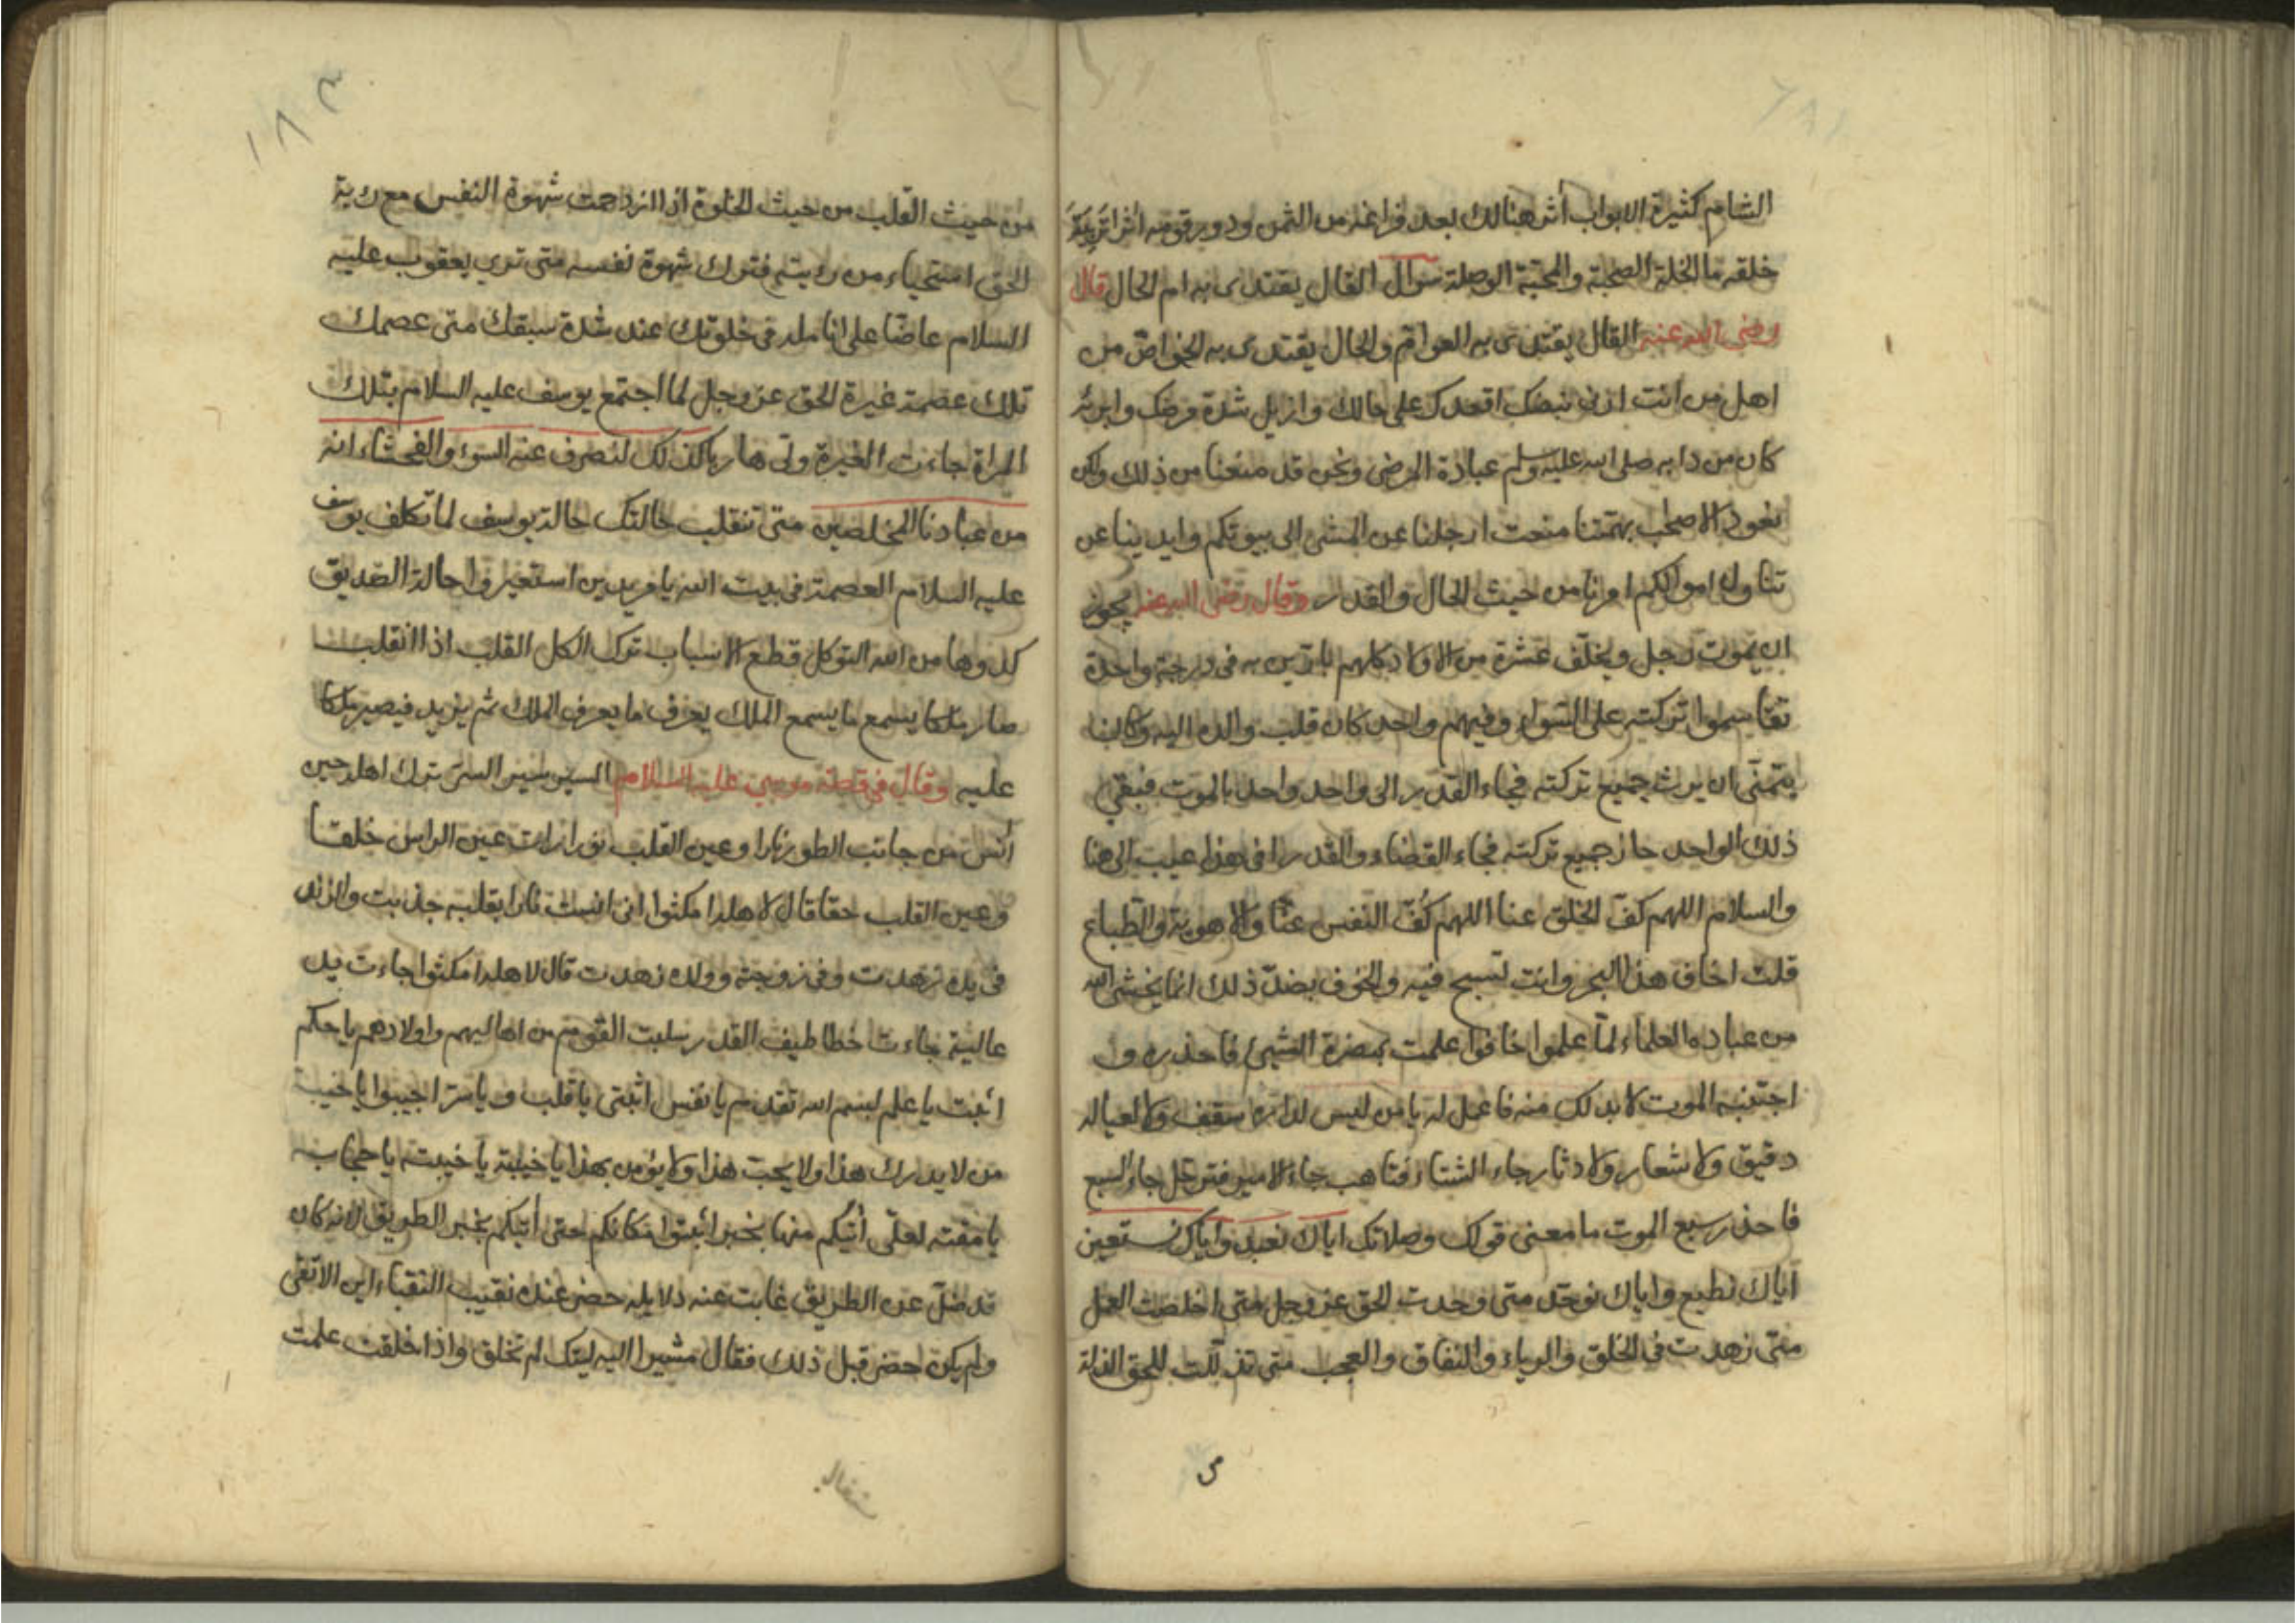 الشام كثيرة الابواب أثر هنالك بعد فراغه من الثمن ودويرقومه اثرا
خلقه ما الخلة الصحبة والمحبة الوصلة سوال القال يقتدى به ام الحال قال
رضى الله عنه القال يقتدى به العوام والحال يقتدى به الخواص من
اهل من انت ارنى نبضك اقعدك على حالك وازيل شدة مرضك وابرئه
كان من دابه صلى الله عليه وسلم عيادة المرضى ونحن قد منعنا من ذلك ولكن
نعود الاصحاب بهمتنا منعت ارجلنا عن المشى الى بيوتكم وايدينا عن
تناول اموالكم امرنا من حيث الحال والقدر وقال رضى الله عنه يجوز
ان يموت رجل ويخلف عشرة من الاولاد كلهم بارين به فى درجة واحدة
تقاسموا تركته على السواء وفيهم واحد كان قلب والده اليه وكان
يتمنى ان يرث جميع تركته فجاء القدر الى واحد واحد بالموت فبقى
ذلك الواحد حاز جميع تركته فجاء القضاء والقدر افى هذا عيب الى هنا
والسلام اللهم كف الخلق عنا اللهم كف النفس عنا والاهوية والطباع
قلت اخاف هذا البحر وانت تسبح فيه والخوف بضد ذلك انما يخشى الله
من عباده العلماء لما علموا خافوا علمت بمضرة الشىء فاحذره و
اجتنبه الموت لا بد لك منه فاعمل له يا من ليس لداره سقف ولا لعياله
دقيق ولا شعار ولا دثار جاء الشتاء فتاهب جاء الامير فترجل جاء السبع
فاحذر سبع الموت ما معنى قولك وصلاتك اياك نعبد واياك نستعين
اياك نطيع واياك نوحد متى وحدت الحق عز وجل متى اخلصت العمل
متى زهدت فى الخلق والرياء والنفاق والعجب متى تذللت للحق الذلة
١٨٣
من حيث القلب من حيث الخلوة اذا ازدحمت شهوة النفس مع رؤية
الحق استحياء من رؤيته فترك شهوة نفسه متى ترى يعقوب عليه
السلام عاضا على انامله فى خلوتك عند شدة سبقك متى عصمك
تلك عصمة غيرة الحق عز وجل لما اجتمع يوسف عليه السلام بتلك
المراة جاءت الغيرة ولى هاربا كذلك لنصرف عنه السوء والفحشاء انه
من عبادنا المخلصين متى تنقلب حالتك حالة يوسف لما تكلف يوسف
عليه السلام العصمة فى بيت الله يا مريدين استعيروا حالة الصديق
كدوها من الله التوكل قطع الاسباب ترك الكل القلب اذا انقلب
صار ملكا يسمع ما يسمع الملك يعرف ما يعرف الملك ثم يزيد فيصير ملكا
عليه وقال فى قصة موسى عليه السلام السير سير السر ترك اهله حين
آنس من جانب الطور نارا وعين القلب نورا رات عين الراس خلقا
وعين القلب حقا قال لاهله امكثوا انى انست نارا بقلبه جذبت والزند
فى يده زهدت وفى زوجته وولده زهدت قال لاهله امكثوا جاءت يد
عالية جاءت خطاطيف القدر سلبت القوم من اهاليهم واولادهم يا حكم
اثبت يا علم بسم الله تقدم يا نفس اثبتى يا قلب ويا سر اجيبوا يا خيبة
من لا يدرك هذا ولا يحب هذا ولا يؤمن بهذا يا خيبته يا خيبته يا حجابه
يا مقته لعلى آتيكم منها بخبر اثبتوا مكانكم حتى آتيكم بخبر الطريق لانه كان
قد ضل عن الطريق غابت عنه دلايله حضر عنده نقيب النقباء ابن الاتقى
ولم يكن حضر قبل ذلك فقال مشيرا اليه ليتك لم تخلق واذا خلقت علمت